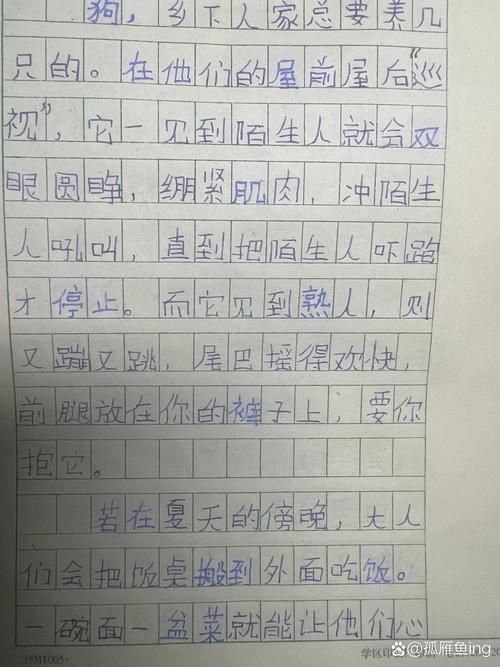 狗，乡下人家总要养几
只的。在他们的屋前屋后“巡
视”，它一见到陌生人就会双
眼圆睁，绷紧肌肉，冲陌生
人吼叫，直到把陌生人吓跑
才停止。而它见到熟人，则
又蹦又跳，尾巴摇得欢快，
前腿放在你的裤子上，要你
抱它。
若在夏天的傍晚，大人
们会把饭桌搬到外面吃饭。
一碗面一盆菜就能让他们心
25M1005·
学区印
@孤雁鱼ing